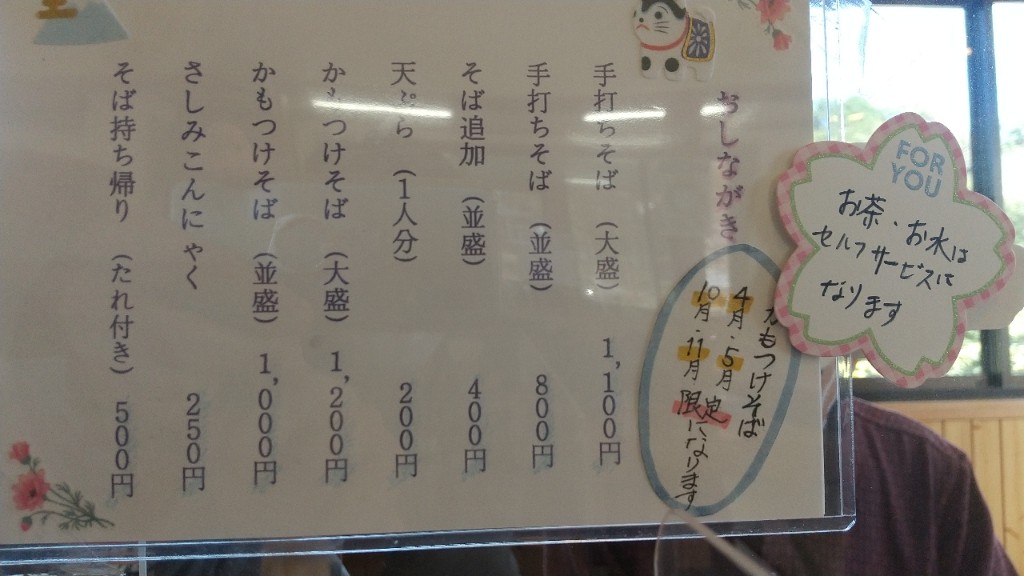 おしながき
手打ちそば （大盛） 1,100円
手打ちそば （並盛） 800円
そば追加 （並盛） 400円
天ぷら （1人分） 200円
かもつけそば （大盛） 1,200円
かもつけそば （並盛） 1,000円
さしみこんにゃく 250円
そば持ち帰り （たれ付き） 500円
かもつけそば
4月・5月
10月・11月
限定になります
FOR
YOU
お茶・お水は
セルフサービスに
なります